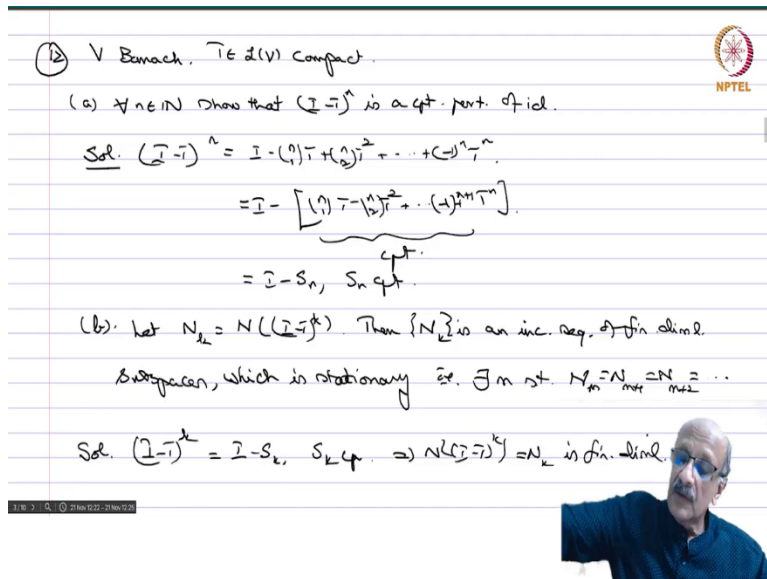 (12) V Banach. T ∈ L(V) compact.
NPTEL
(a) ∀ n ∈ ℕ show that (I-T)^n is a cpt. pert. of id.
Sol. (I-T)^n = I - (n 1)T + (n 2)T^2 + ... + (-1)^n T^n.
= I - [(n 1)T - (n 2)T^2 + ... (-1)^{n+1} T^n].
cpt.
= I - S_n, S_n cpt.
(b). Let N_k = N((I-T)^k). Then {N_k} is an inc. seq. of fin diml.
subspaces, which is stationary ie. ∃ n st. N_n = N_{n+1} = N_{n+2} = ...
Sol. (I-T)^k = I - S_k, S_k cp. ⇒ N((I-T)^k) = N_k is fin. diml.
3/10 21 Nov 12:22 - 21 Nov 12:25